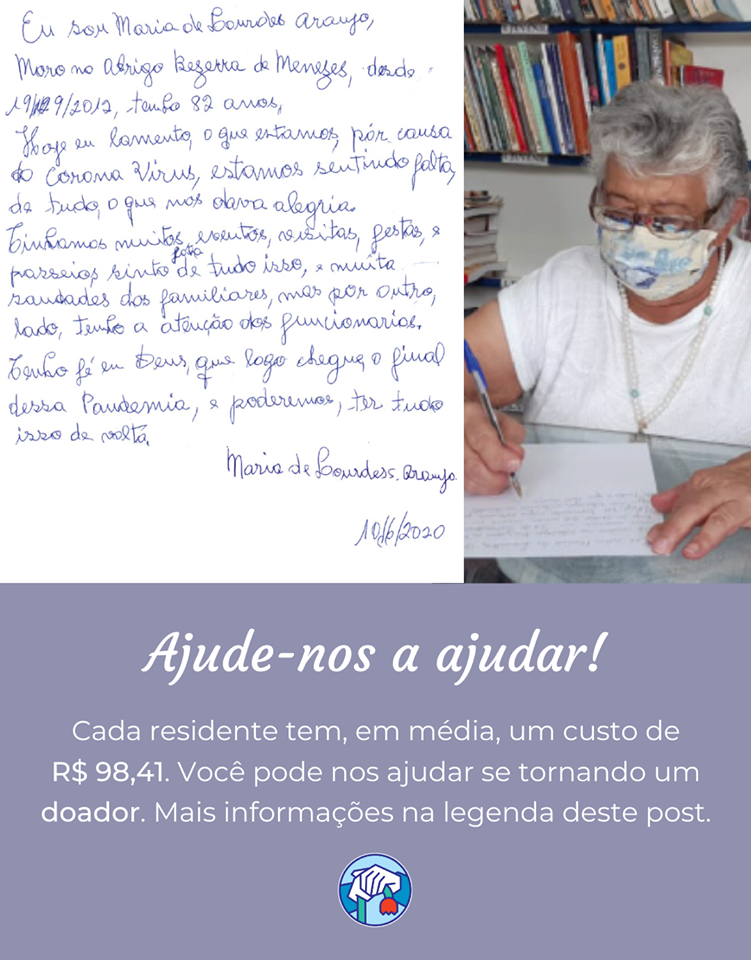 Eu sou Maria de Lourdes Araujo,
Moro no Abrigo Bezerra de Menezes, desde
19/ 9/2012, tenho 82 anos,
Hoje eu lamento, o que estamos, por causa
do Corona Virus, estamos sentindo falta,
de tudo, o que nos dava alegria.
Tinhamos muitos, eventos, visitas, festas, e
passeios sinto falta de tudo isso, e muita
saudades dos familiares, mas por outro,
lado, tenho a atenção dos funcionarios.
Tenho fé em Deus, que logo chegue o final
dessa Pandemia, e poderemos, ter tudo
isso de volta.
Maria de Lourdess. Araujo
10/6/2020
Ajude-nos a ajudar!
Cada residente tem, em média, um custo de
R$ 98,41. Você pode nos ajudar se tornando um
doador. Mais informações na legenda deste post.